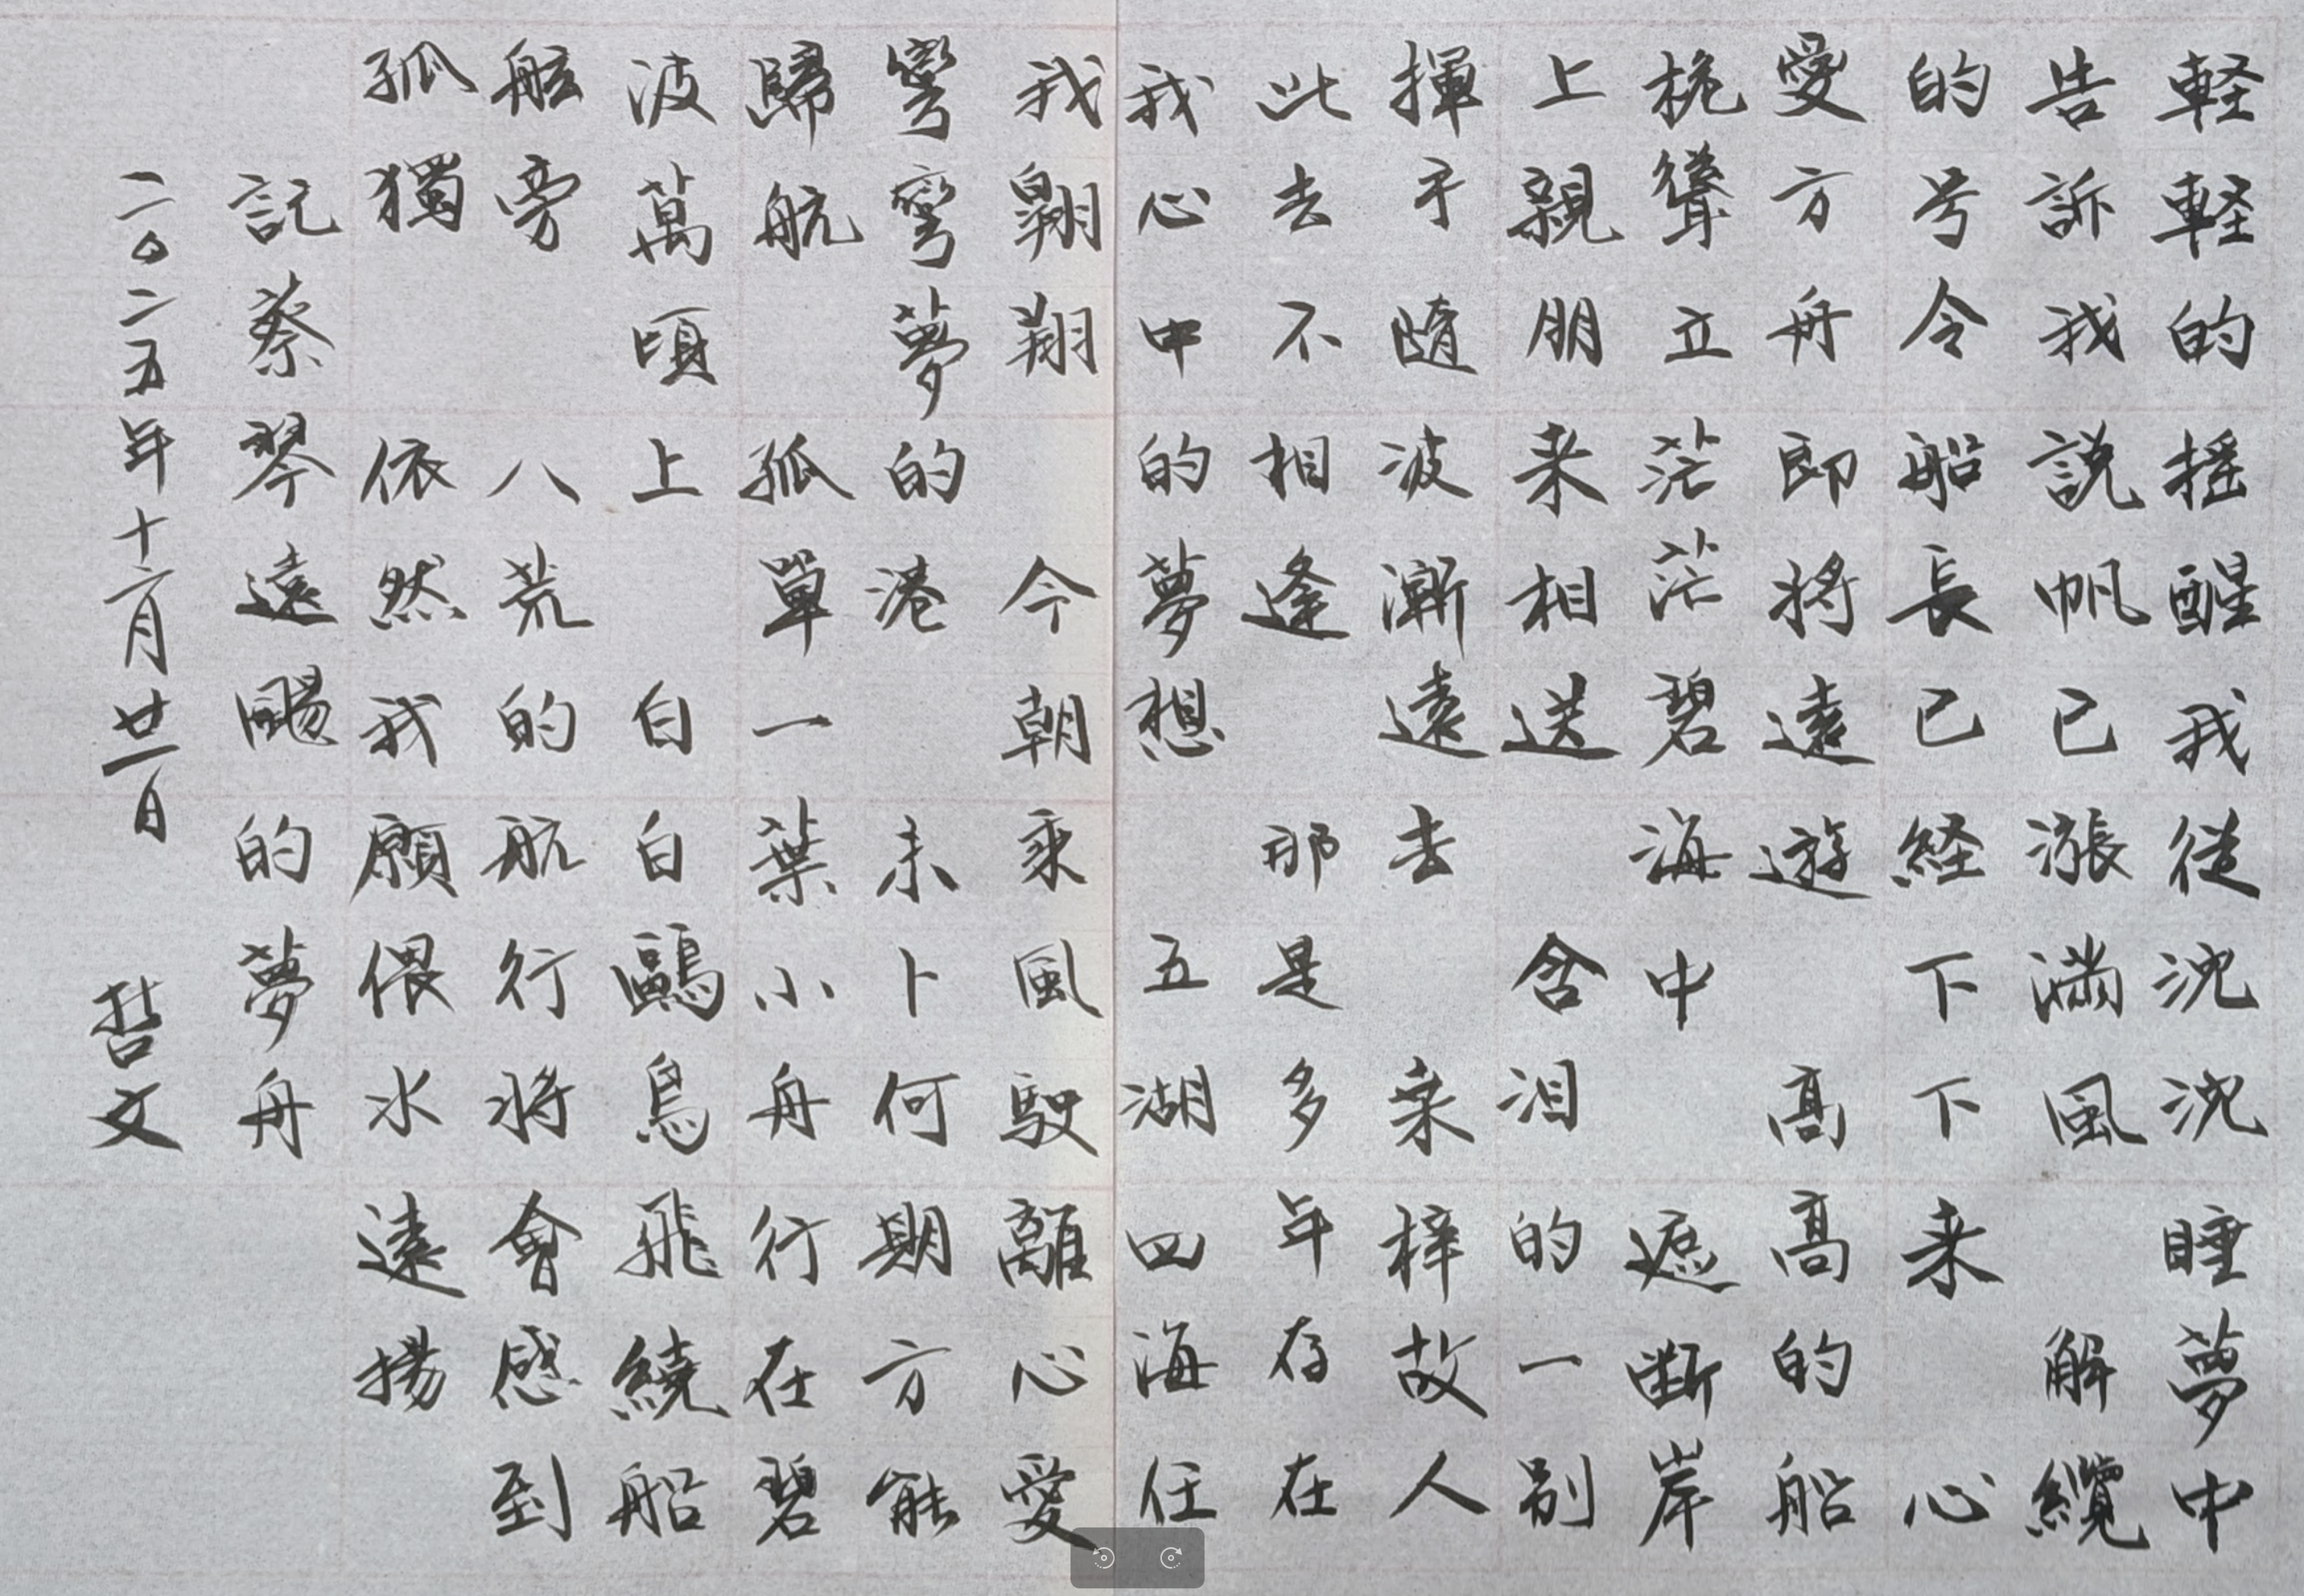 軽軽的搖醒我從沈沈睡夢中
告訴我説帆已漲満風 解纜
的号令船長已経下下来 心
愛方舟即將遠遊 高高的船
桅聳立茫茫碧海中 遮断岸
上親朋来相送 含泪的一別
揮手隨波漸遠去 桑梓故人
此去不相逢 那是多年存在
我心中的夢想 五湖四海任
我翺翔 今朝乘風駛離心愛
彎彎夢的港 未卜何期方能
歸航 孤單一葉小舟行在碧
波萬頃上 白白鷗鳥飛繞船
舷旁 八荒的航行將會感到
孤獨 依然我願偎水遠揚
記蔡琴遠颺的夢舟
二〇二五年十六月廿一日 哲文